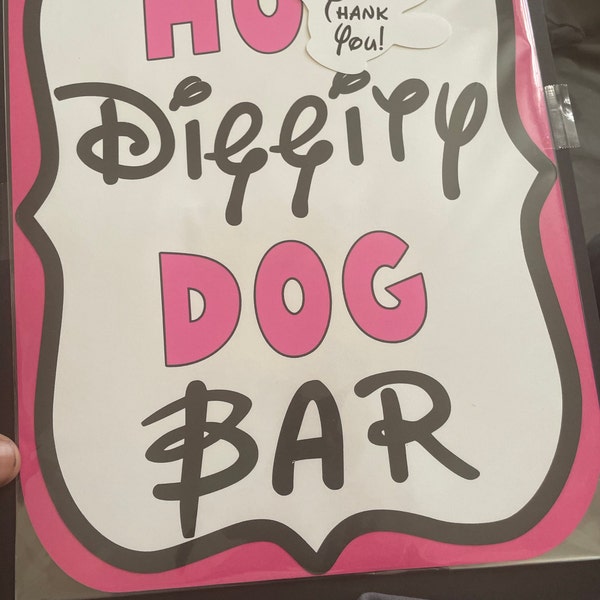 HO
THANK
YOU!
DiggiTy
DOG
BAR